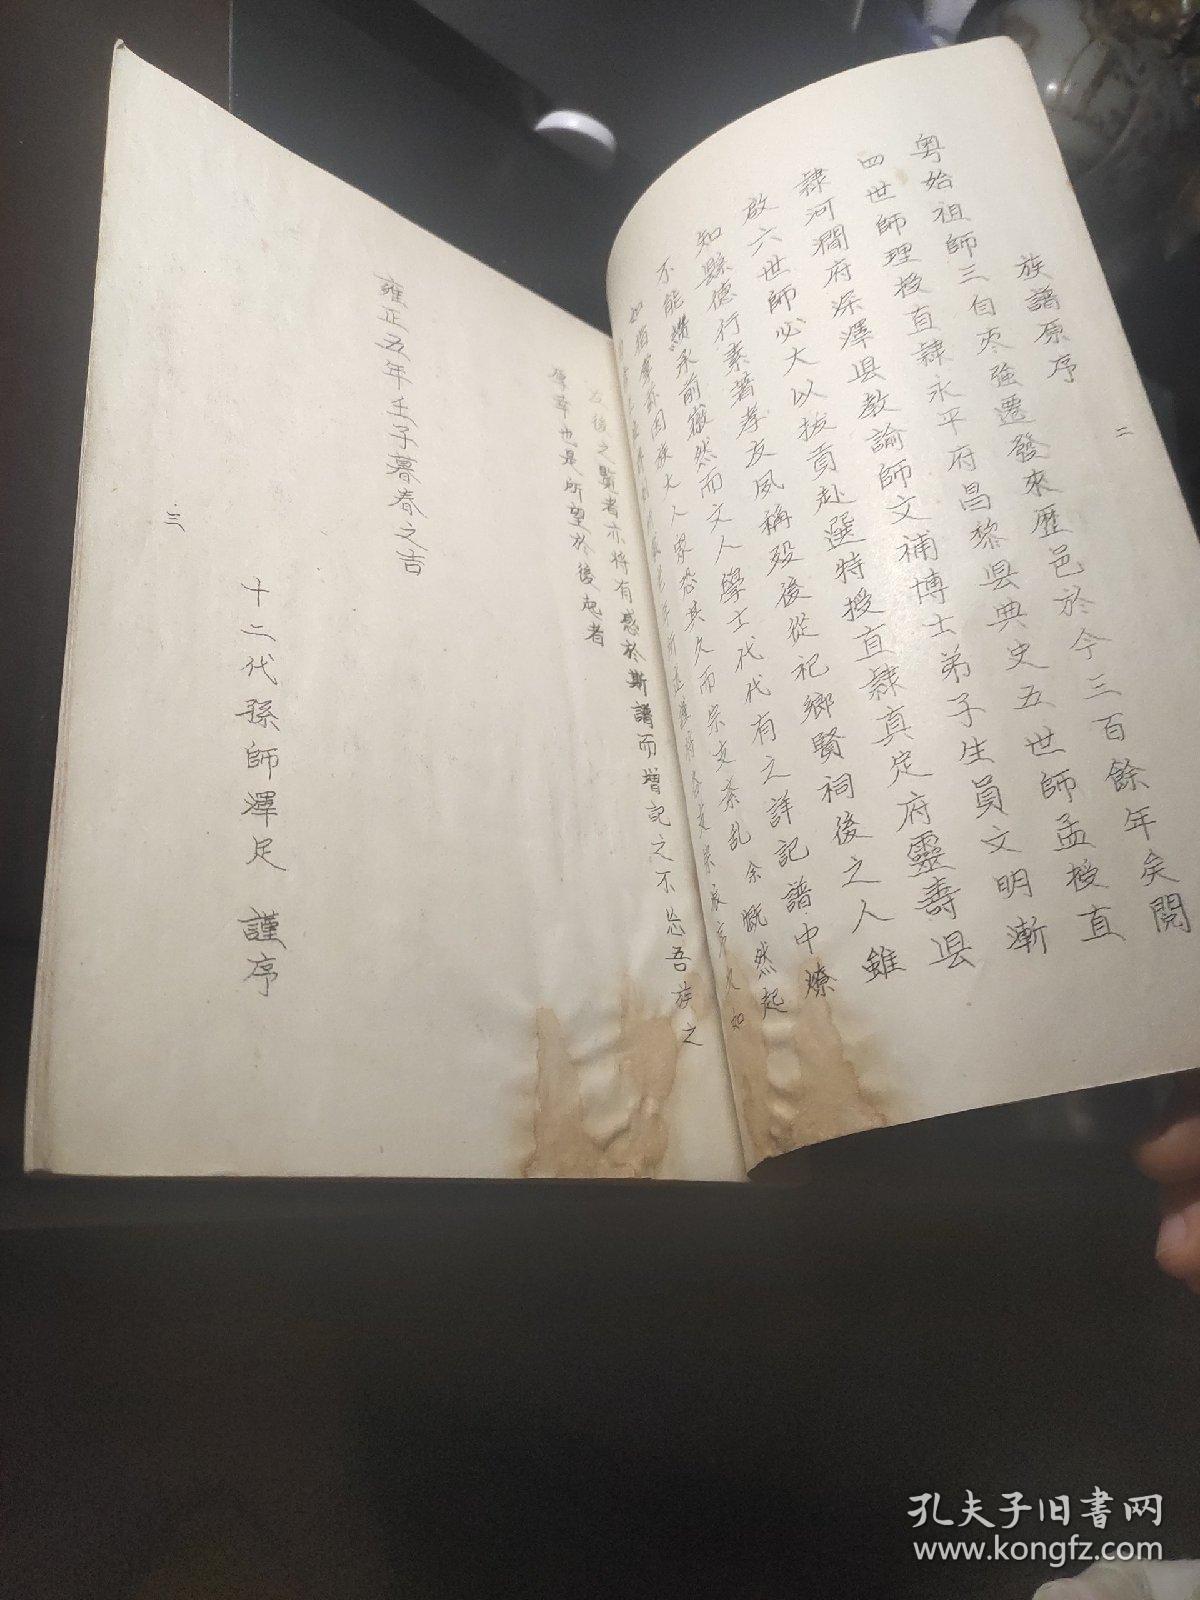 族譜原序
二
粤始祖師三自枣強遷發來歷邑於今三百餘年矣閱
四世師理授直隸永平府昌黎县典史五世師孟授直
隸河澗府深澤县教諭師文補博士弟子生員文明漸
啟六世師必大以拔貢赴選特授直隸真定府靈壽县
知縣德行素著孝友夙稱殁後從祀鄉賢祠後之人雖
不能纘承前徽然而文人學士代代有之詳記譜中燎
如指掌 因族大人眾恐其久而宗支紊乱余慨然起
後之賢者亦将有感於斯譜而增記之不忿吾族之
厚幸也是所望於後起者
雍正五年壬子暮春之吉
十二代孫師澤足 謹序
三
孔夫子旧書网
www.kongfz.com